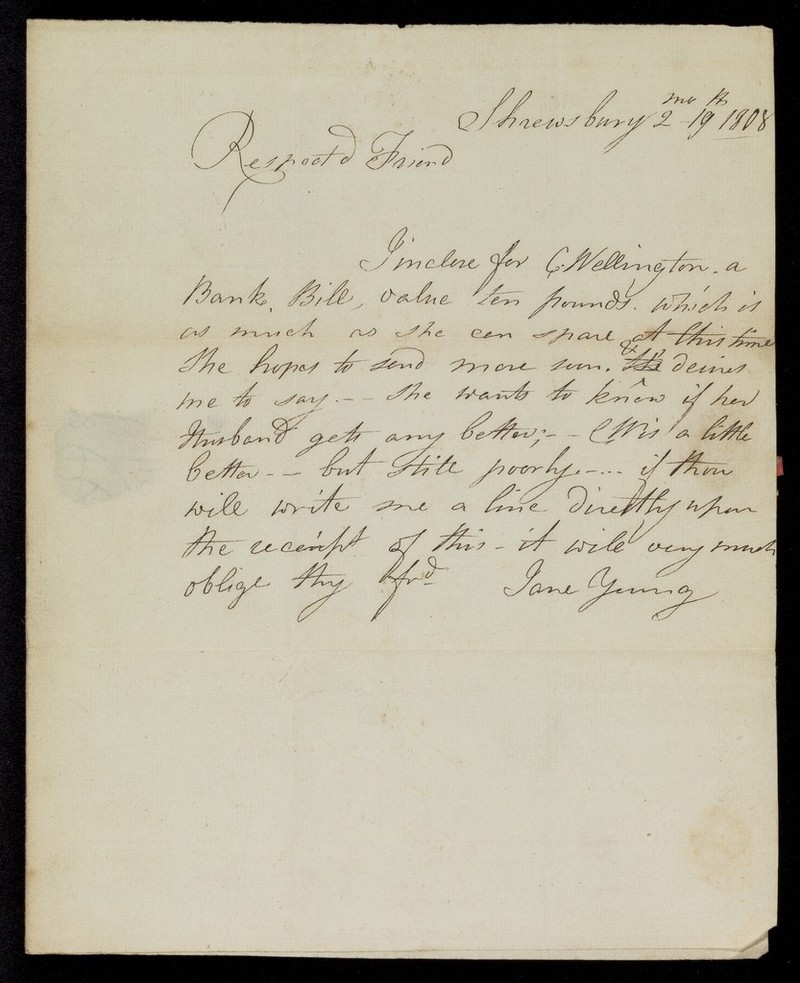 Shrewsbury 2 mo 19th 1808
Respectd Friend
I inclose for C. Wellington. a
Bank Bill, value ten pounds. which is
as much as she can spare at this time
She hopes to send more soon. & desires
me to say. - - she wants to know if her
Husband gets any better; - - CW is a little
better - - but still poorly - ... if thou
will write me a line directly upon
the receipt of this - it will very much
oblige thy frd Jane Young